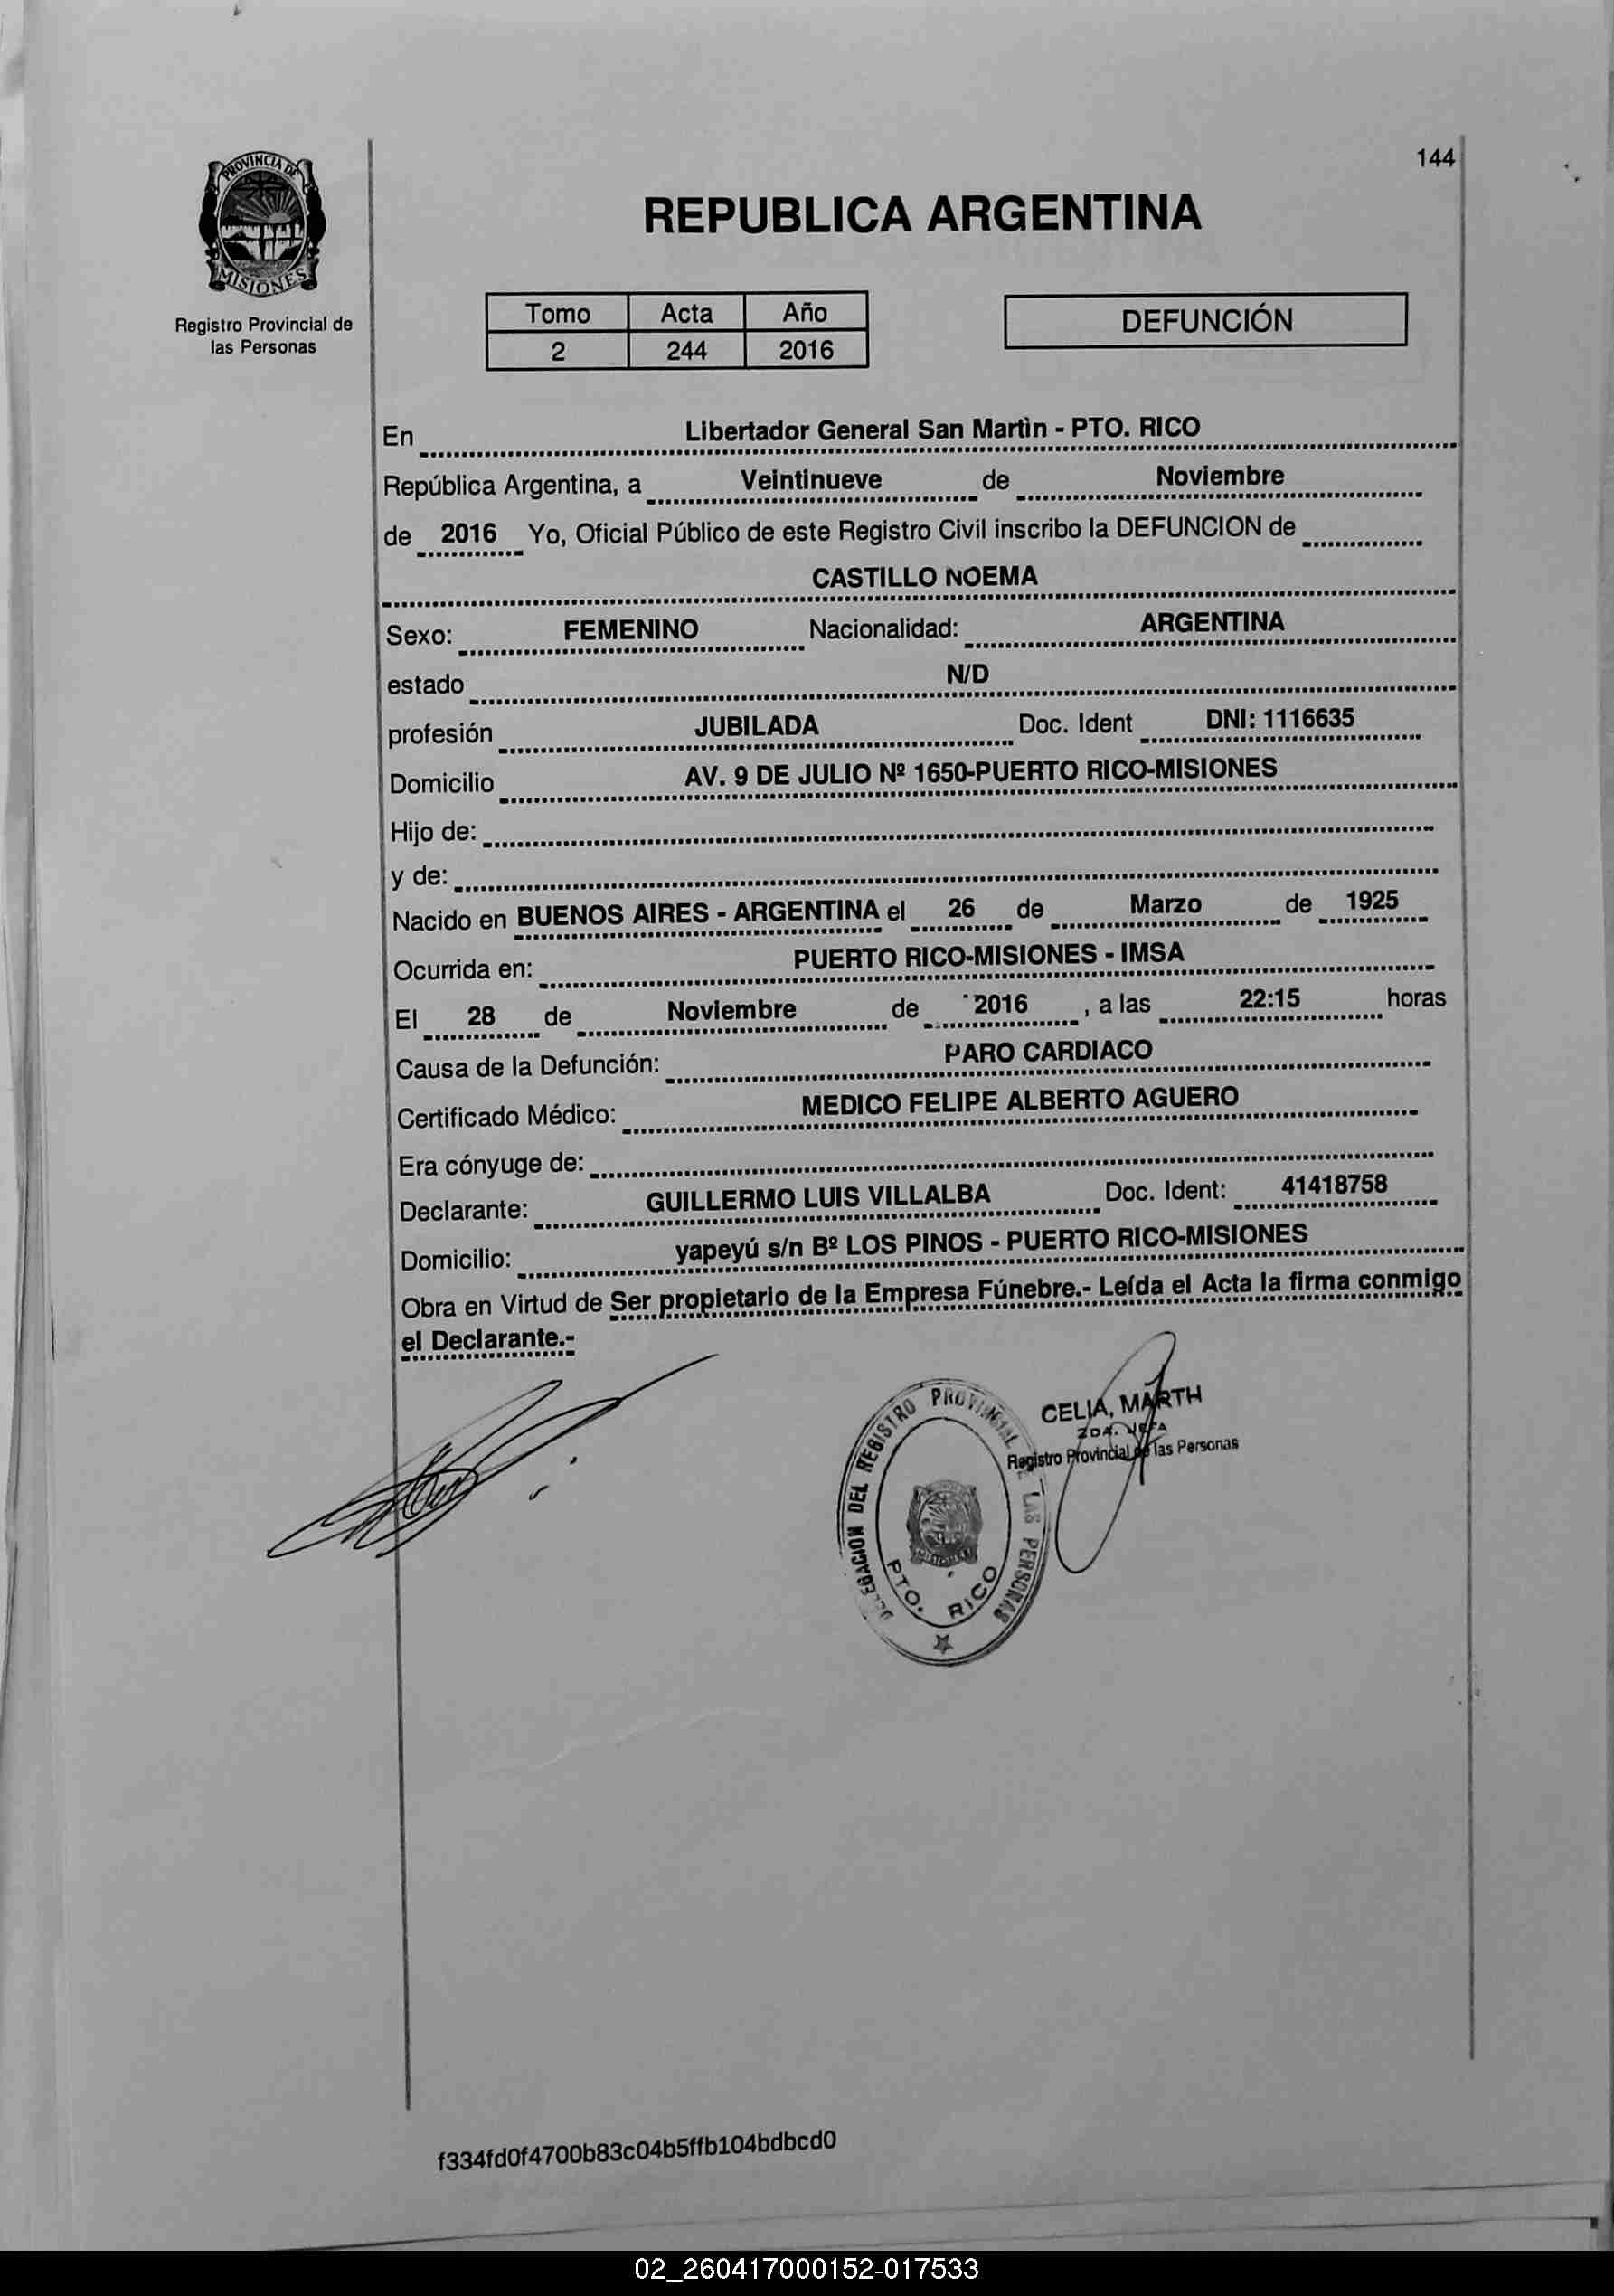 144
PROVINCIA DE
MISIONES
Registro Provincial de
las Personas
REPUBLICA ARGENTINA
Tomo Acta Año
2 244 2016
DEFUNCIÓN
En Libertador General San Martìn - PTO. RICO
República Argentina, a Veintinueve de Noviembre
de 2016 Yo, Oficial Público de este Registro Civil inscribo la DEFUNCION de
CASTILLO NOEMA
Sexo: FEMENINO Nacionalidad: ARGENTINA
estado N/D
profesión JUBILADA Doc. Ident DNI: 1116635
Domicilio AV. 9 DE JULIO Nº 1650-PUERTO RICO-MISIONES
Hijo de:
y de:
Nacido en BUENOS AIRES - ARGENTINA el 26 de Marzo de 1925
Ocurrida en: PUERTO RICO-MISIONES - IMSA
El 28 de Noviembre de 2016 , a las 22:15 horas
Causa de la Defunción: PARO CARDIACO
Certificado Médico: MEDICO FELIPE ALBERTO AGUERO
Era cónyuge de:
Declarante: GUILLERMO LUIS VILLALBA Doc. Ident: 41418758
Domicilio: yapeyú s/n Bº LOS PINOS - PUERTO RICO-MISIONES
Obra en Virtud de Ser propietario de la Empresa Fúnebre.- Leída el Acta la firma conmigo
el Declarante.-
CELIA, MARTH
2DA. JEFA
Registro Provincial de las Personas
DELEGACION DEL REGISTRO PROVINCIAL DE LAS PERSONAS
PTO. RICO
f334fd0f4700b83c04b5ffb104bdbcd0
02_260417000152-017533